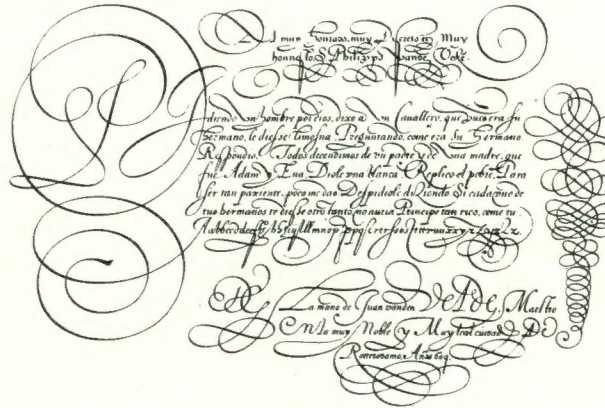 Al muy honrado, muy Discreto et Muy
honna to, S. Philippo vande Velde.
Pidiendo un hombre por dios, dixo a un Cavallero, que pues era su
hermano, le diesse limosna Preguntando, come era su hermano
Respondio, Todos decendimos de un padre y de una madre, que
fue Adam y Eva Diole una blanca Replico el pobre, Para
ser tan pariente, poco me das Despidiole diziendo, Si cada uno de
tus hermanos te diesse otro tanto no auria Principe tan rico, come tu
La mano de Juan vanden Velde, Maestro
En la muy Noble y Muy leal ciudad De
Rotterodamo, Año 609.